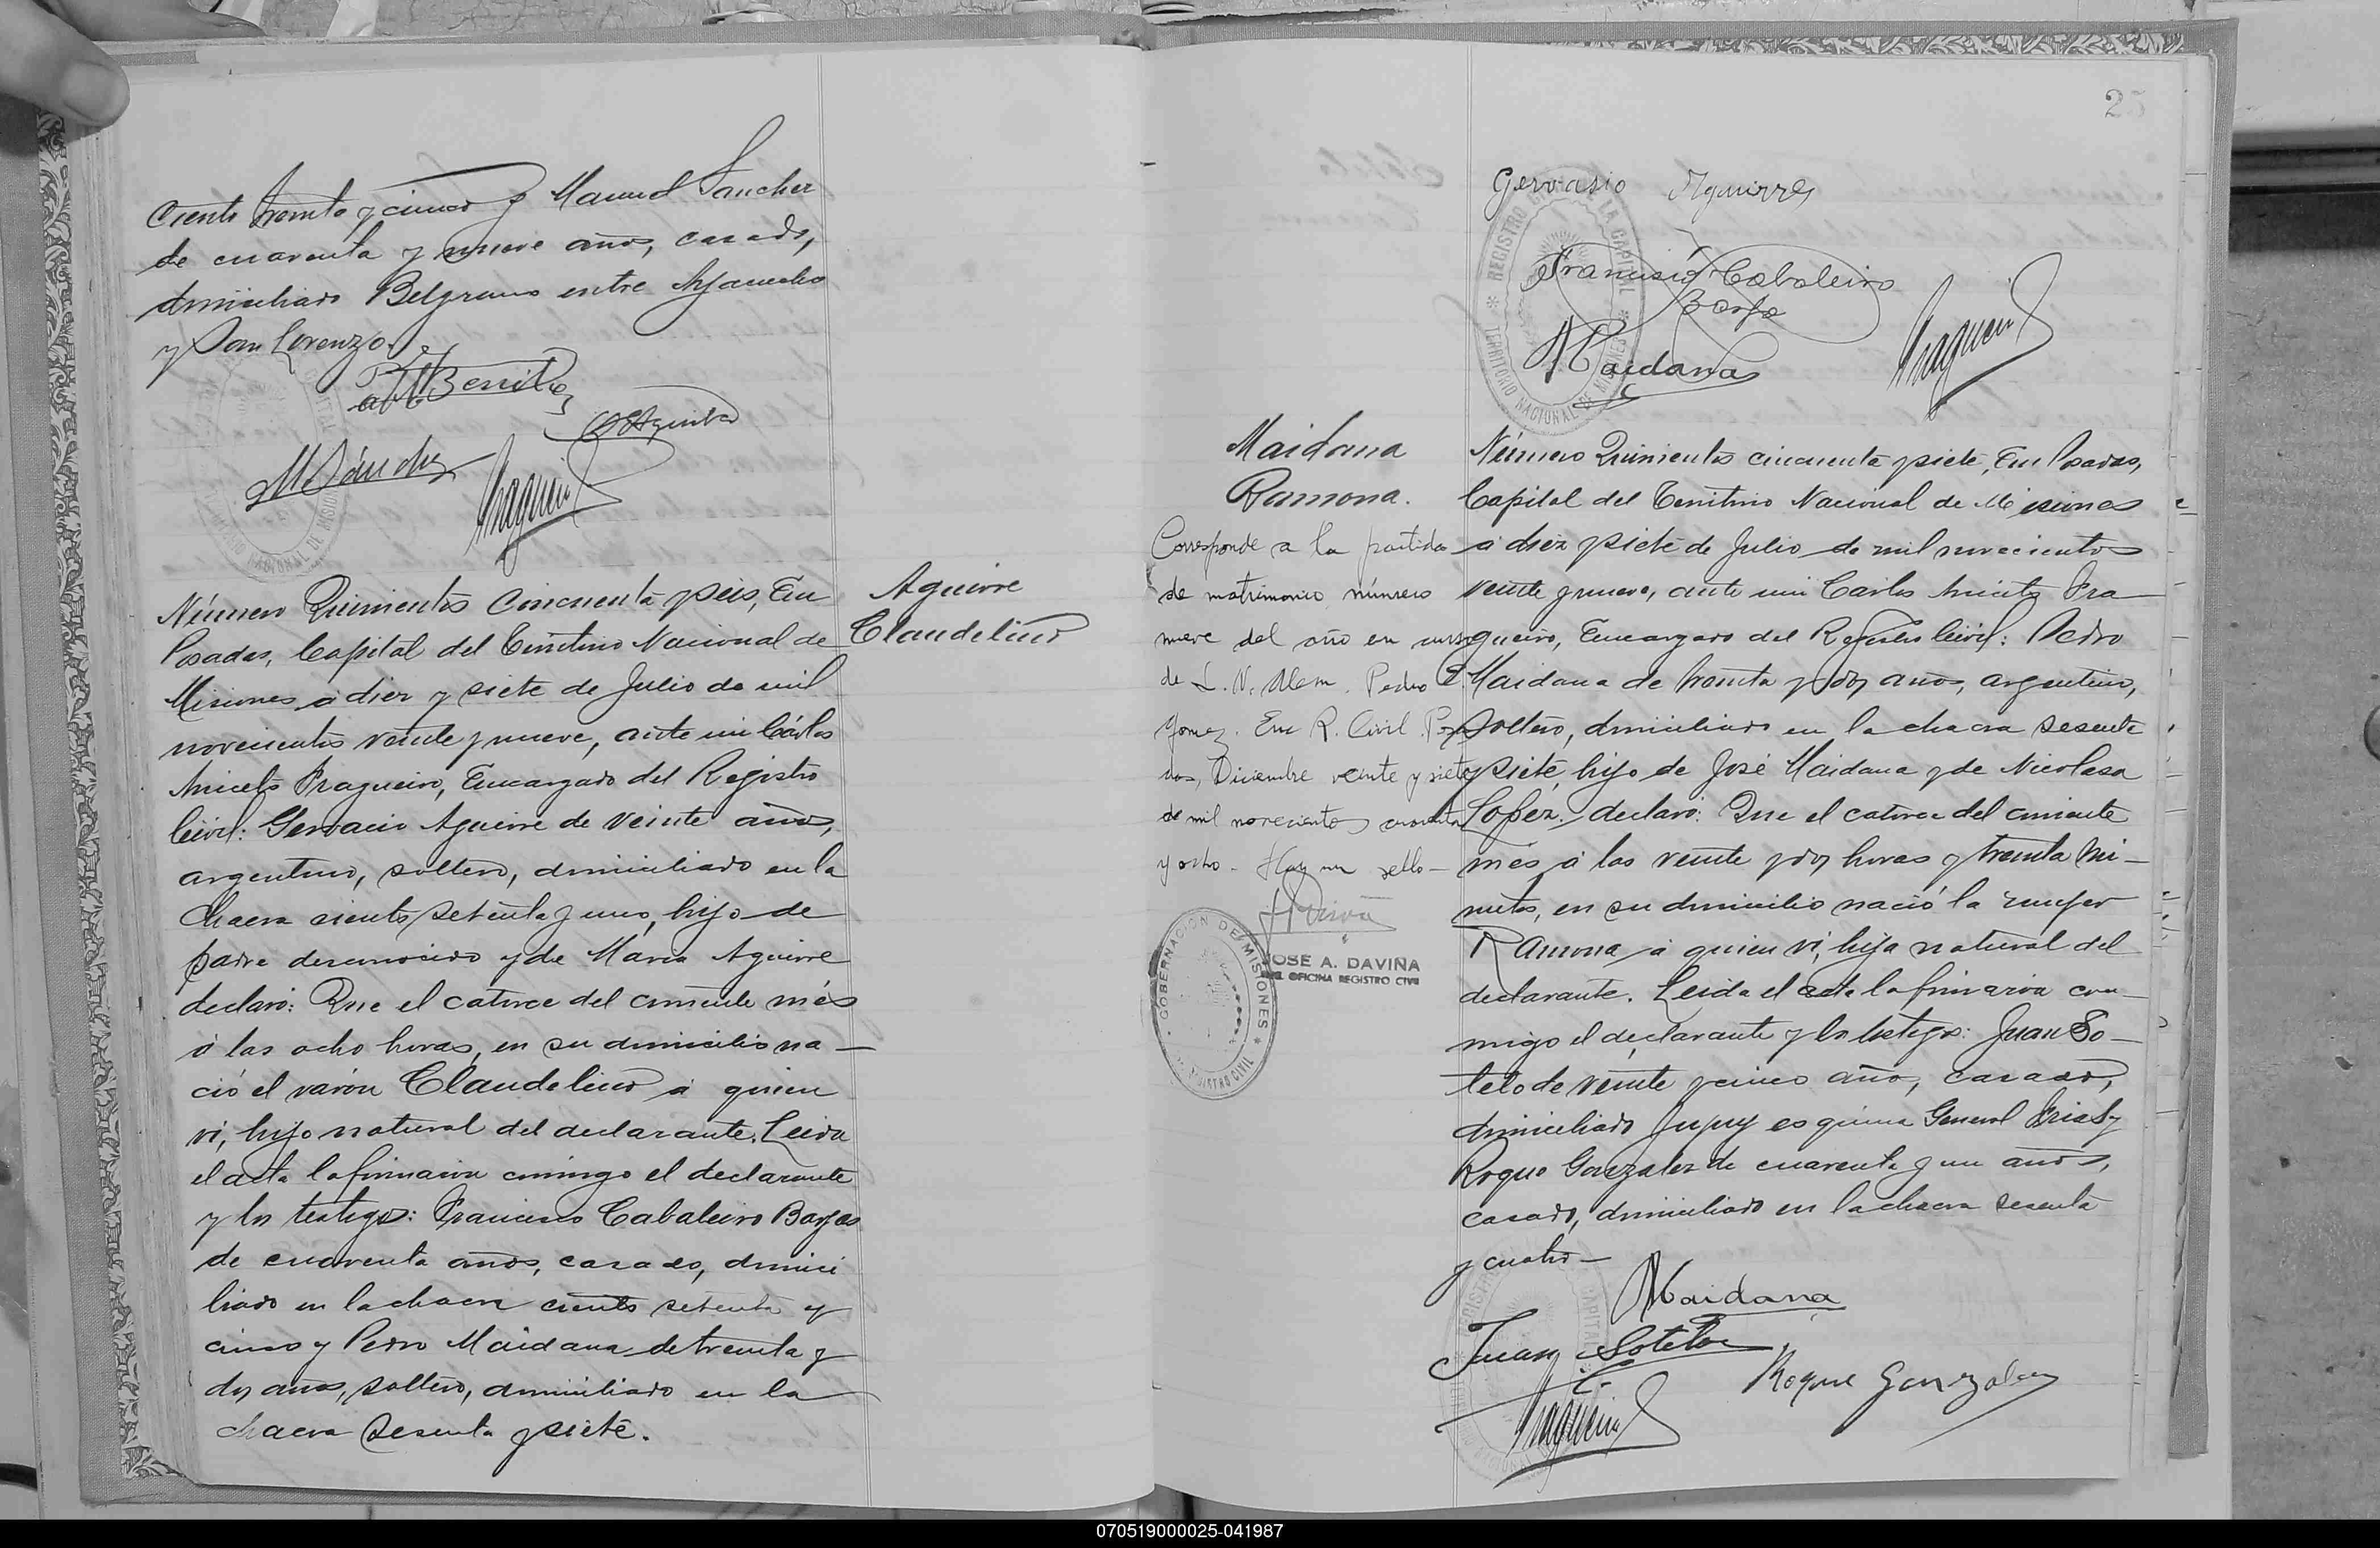 ciento treinta y cinco y Manuel Sanchez
de cuarenta y nueve años, casado,
domiciliado Belgrano entre Ayacucho
y San Lorenzo.
M Sánchez
Fragueiro
Número Quinientos cincuenta y seis, En
Posadas, Capital del Territorio Nacional de
Misiones a diez y siete de Julio de mil
novecientos veinte y nueve, ante mi Cárlos
Aniceto Fragueiro, Encargado del Registro
Civil: Gervacio Aguirre de veinte años,
argentino, soltero, domiciliado en la
chacra ciento setenta y uno, hijo de
padre desconocido y de Maria Aguirre
declaró: Que el catorce del corriente més
á las ocho horas, en su domicilio na-
ció el varón Claudelino á quien
vi, hijo natural del declarante. Leida
el acta la firmaron conmigo el declarante
y los testigos: Francisco Cabaleiro Barja
de cuarenta años, casado, domici
liado en la chacra ciento setenta y
cinco y Pedro Maidana de treinta y
dos años, soltero, domiciliado en la
chacra sesenta y siete.
Aguirre
Claudelino
25
Gervasio Aguirre
Francisco Cabaleiro
Barja
Maidana
Fragueiro
REGISTRO CIVIL DE LA CAPITAL
TERRITORIO NACIONAL DE MISIONES
Maidana
Ramona.
Corresponde a la partida
de matrimonio número
nueve del año en curso
de L. N. Alem. Pedro E.
Gomez. Enc R. Civil. Posa
das, Diciembre veinte y siete
de mil novecientos cuarenta
y ocho - Hay un sello -
JOSE A. DAVIÑA
OFICINA REGISTRO CIVIL
GOBERNACION DE MISIONES
REGISTRO CIVIL
Número Quinientos cincuenta y siete, En Posadas,
Capital del Territorio Nacional de Misiones
á diez y siete de Julio de mil novecientos
veinte y nueve, ante mi Carlos Aniceto Fra
gueiro, Encargado del Registro Civil: Pedro
Maidana de treinta y dos años, argentino,
soltero, domiciliado en la chacra sesenta
y siete, hijo de José Maidana y de Nicolasa
Lopéz. declaró: Que el catorce del corriente
més á las veinte y dos horas y treinta mi-
nutos, en su domicilio nació la mujer
Ramona á quien vi, hija natural del
declarante. Leida el acta la firmaron con-
migo el declarante y los testigos: Juan So-
telo de veinte y cinco año, casado,
domiciliado Jujuy esquina General Frias y
Roque Gonzalez de cuarenta y un años,
casado, domiciliado en la chacra sesenta
y cuatro-
Maidana
Juan Sotelo
Roque Gonzalez
Fragueiro
070519000025-041987